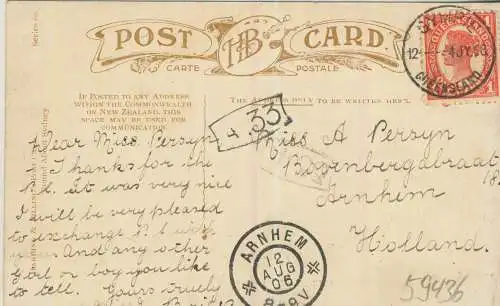 POST CARD
HB
CARTE POSTALE
IF POSTED TO ANY ADDRESS
WITHIN THE COMMONWEALTH
OR NEW ZEALAND, THIS
SPACE MAY BE USED FOR
COMMUNICATION.
THE ADDRESS ONLY TO BE WRITTEN HERE.
QUEENSLAND
33
Dear Miss Persyn
Thanks for the
P.C. It was very nice
I will be very pleased
to exchange P.C with
you And any other
Girl or boy you like
to tell. Yours truly
Miss A Persyn
Arnhem
Holland.
ARNHEM
12
AUG
06
8-9V
59436